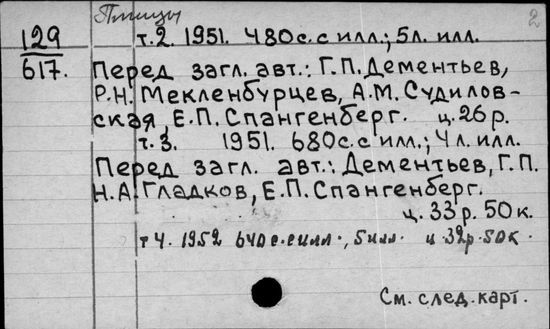 Птицы
2
129
617.
т.2. 1951. 480с. с илл.; 5л. илл.
Перед загл. авт.: Г.П. Дементьев,
Р.Н. Мекленбурцев, А.М. Судилов-
ская, Е.П. Спангенберг. ц. 26 р.
т.3. 1951. 680с. с илл.; 4л. илл.
Перед загл. авт.: Дементьев, Г.П.
Н.А. Гладков, Е.П. Спангенберг.
ц. 33 р. 50 к.
т 4. 1952 640 с. с илл., 5 илл. ц 32р. 50к.
См. след. карт.